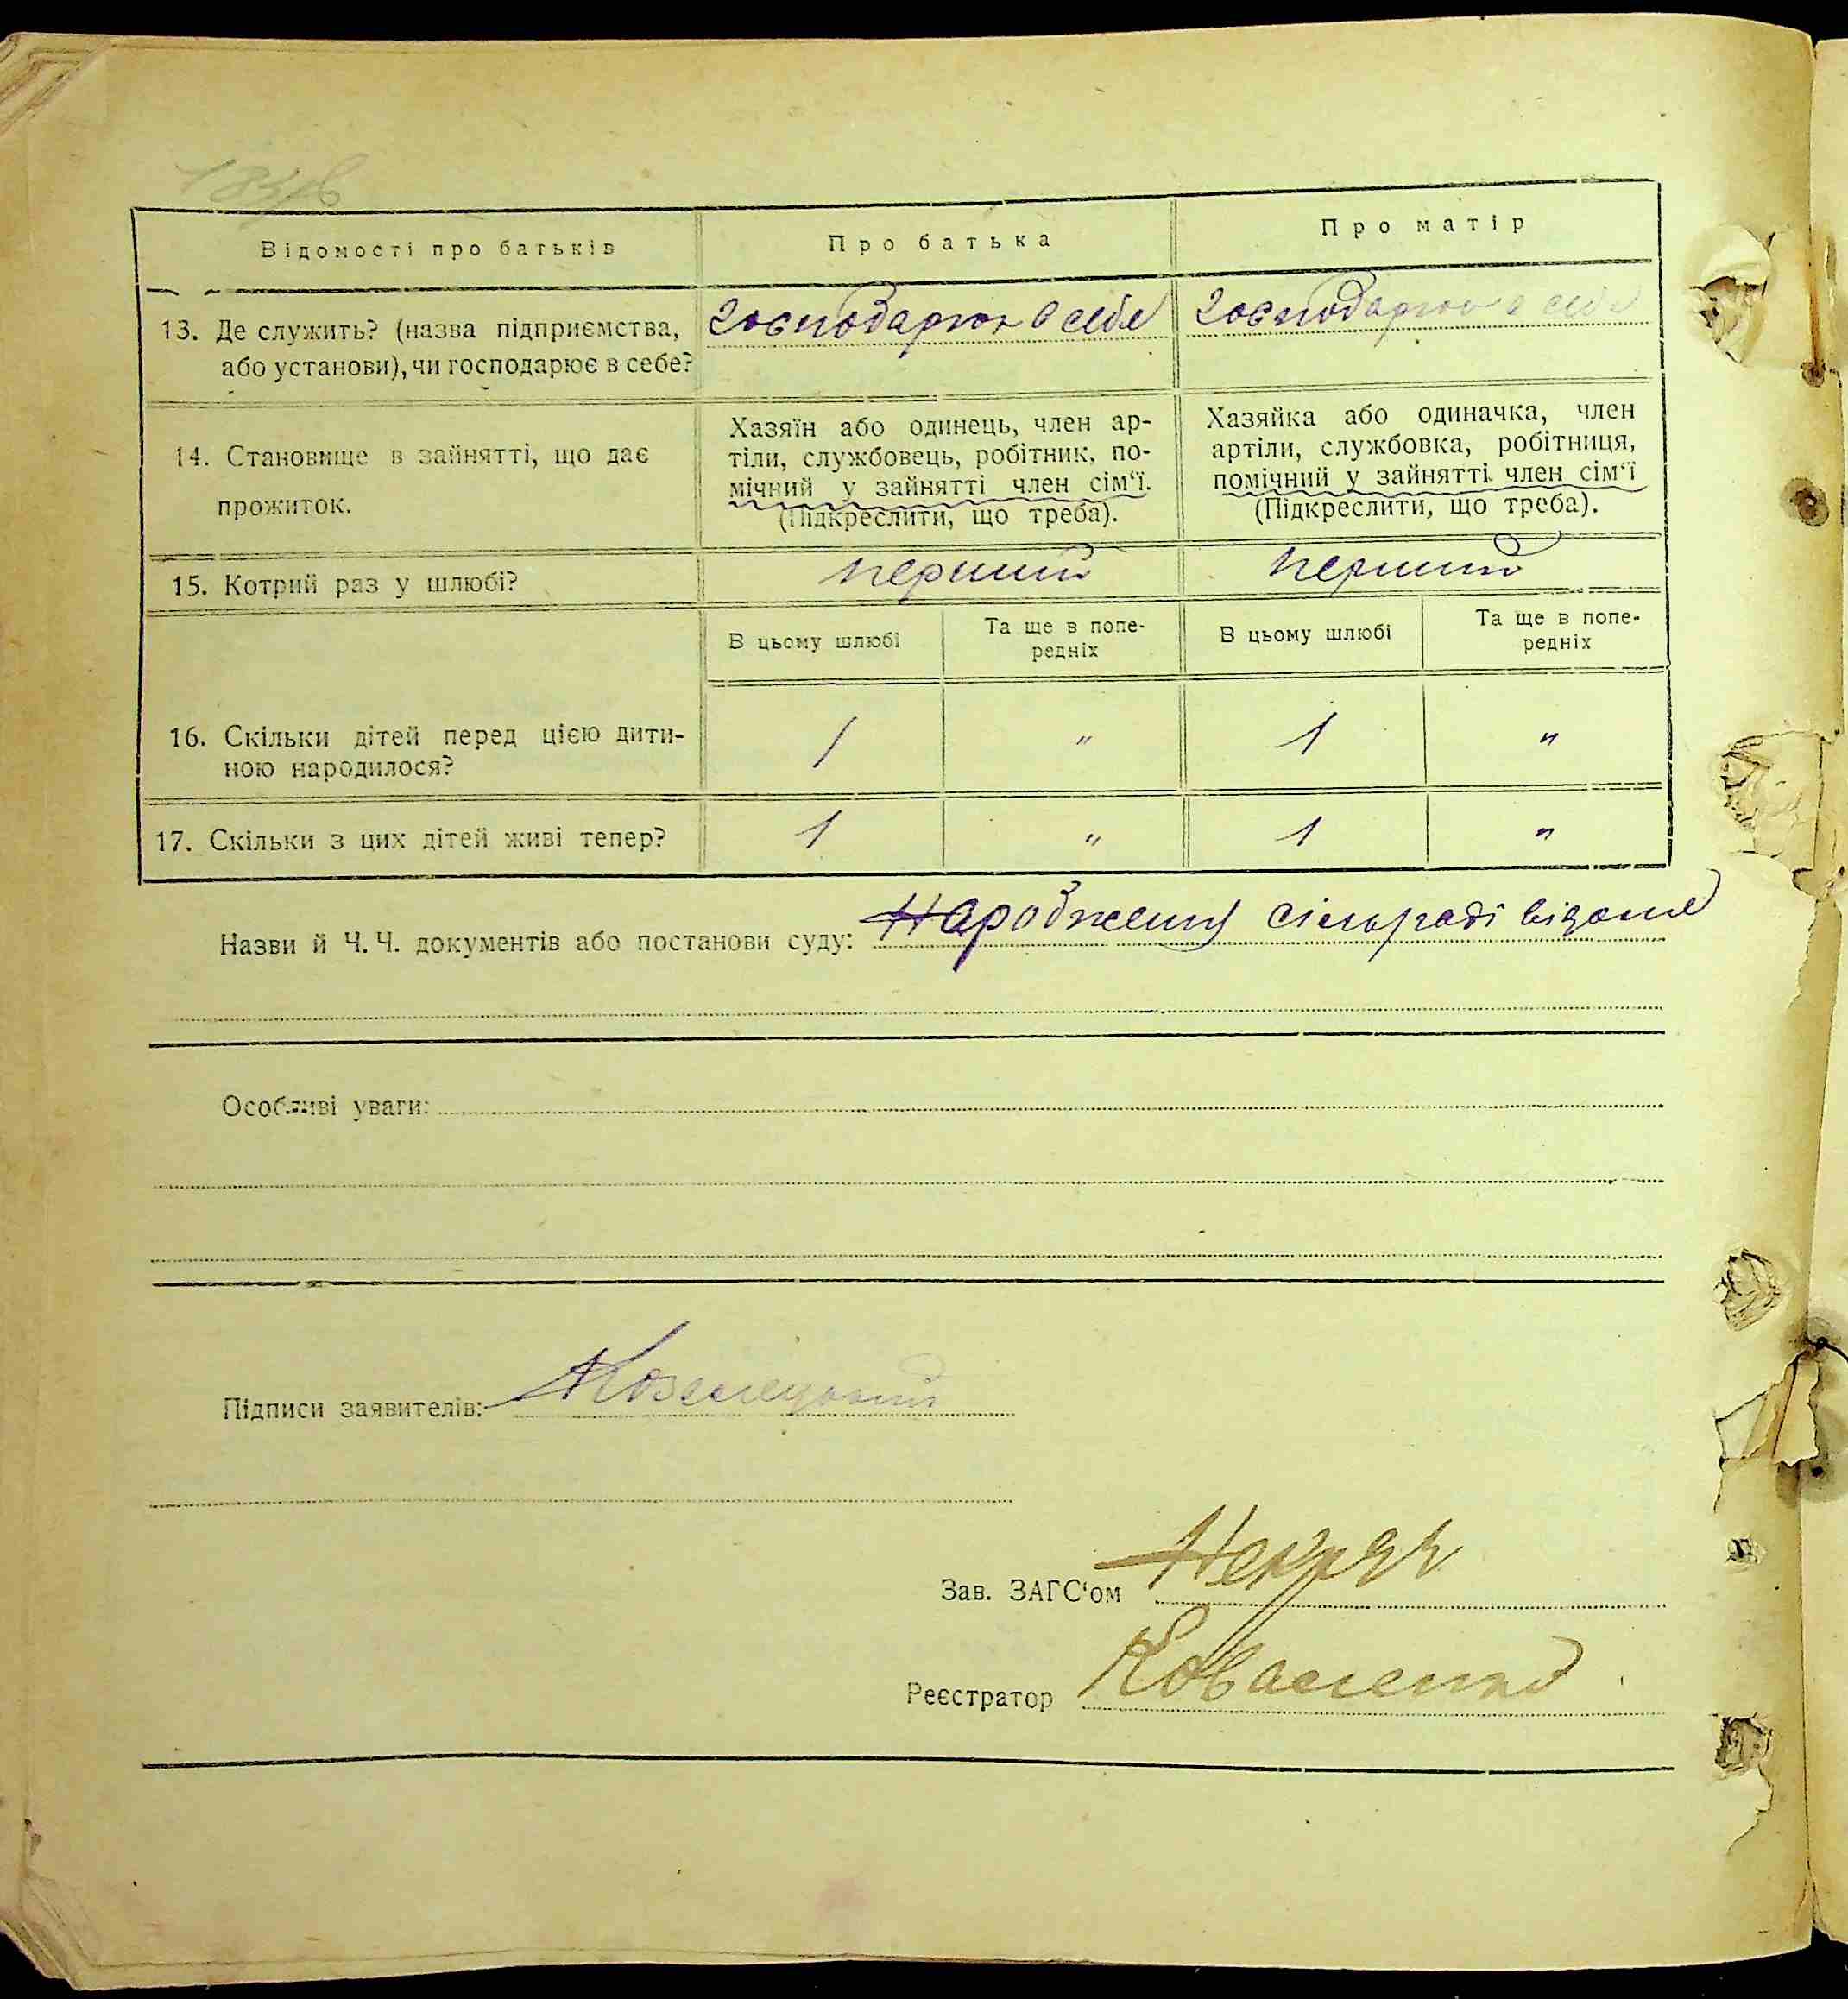 Відомості про батьків
Про батька
Про матір
13. Де служить? (назва підприємства, або установи), чи господарює в себе?
господарює в себе
господарює в себе
14. Становище в зайнятті, що дає прожиток.
Хазяїн або одинець, член ар-
тіли, службовець, робітник, по-
мічний у зайнятті член сім‘ї.
(Підкреслити, що треба).
Хазяйка або одиначка, член
артіли, службовка, робітниця,
помічний у зайнятті член сім‘ї
(Підкреслити, що треба).
15. Котрий раз у шлюбі?
перший
перший
В цьому шлюбі
Та ще в попе-
редніх
В цьому шлюбі
Та ще в попе-
редніх
16. Скільки дітей перед цією дити-
ною народилося?
1 " 1 "
17. Скільки з цих дітей живі тепер?
1 " 1 "
Назви й Ч.Ч. документів або постанови суду: Народження сільраді відоме
Особливі уваги:
Підписи заявителів:
Зав. ЗАГС‘ом
Реєстратор Коваленко